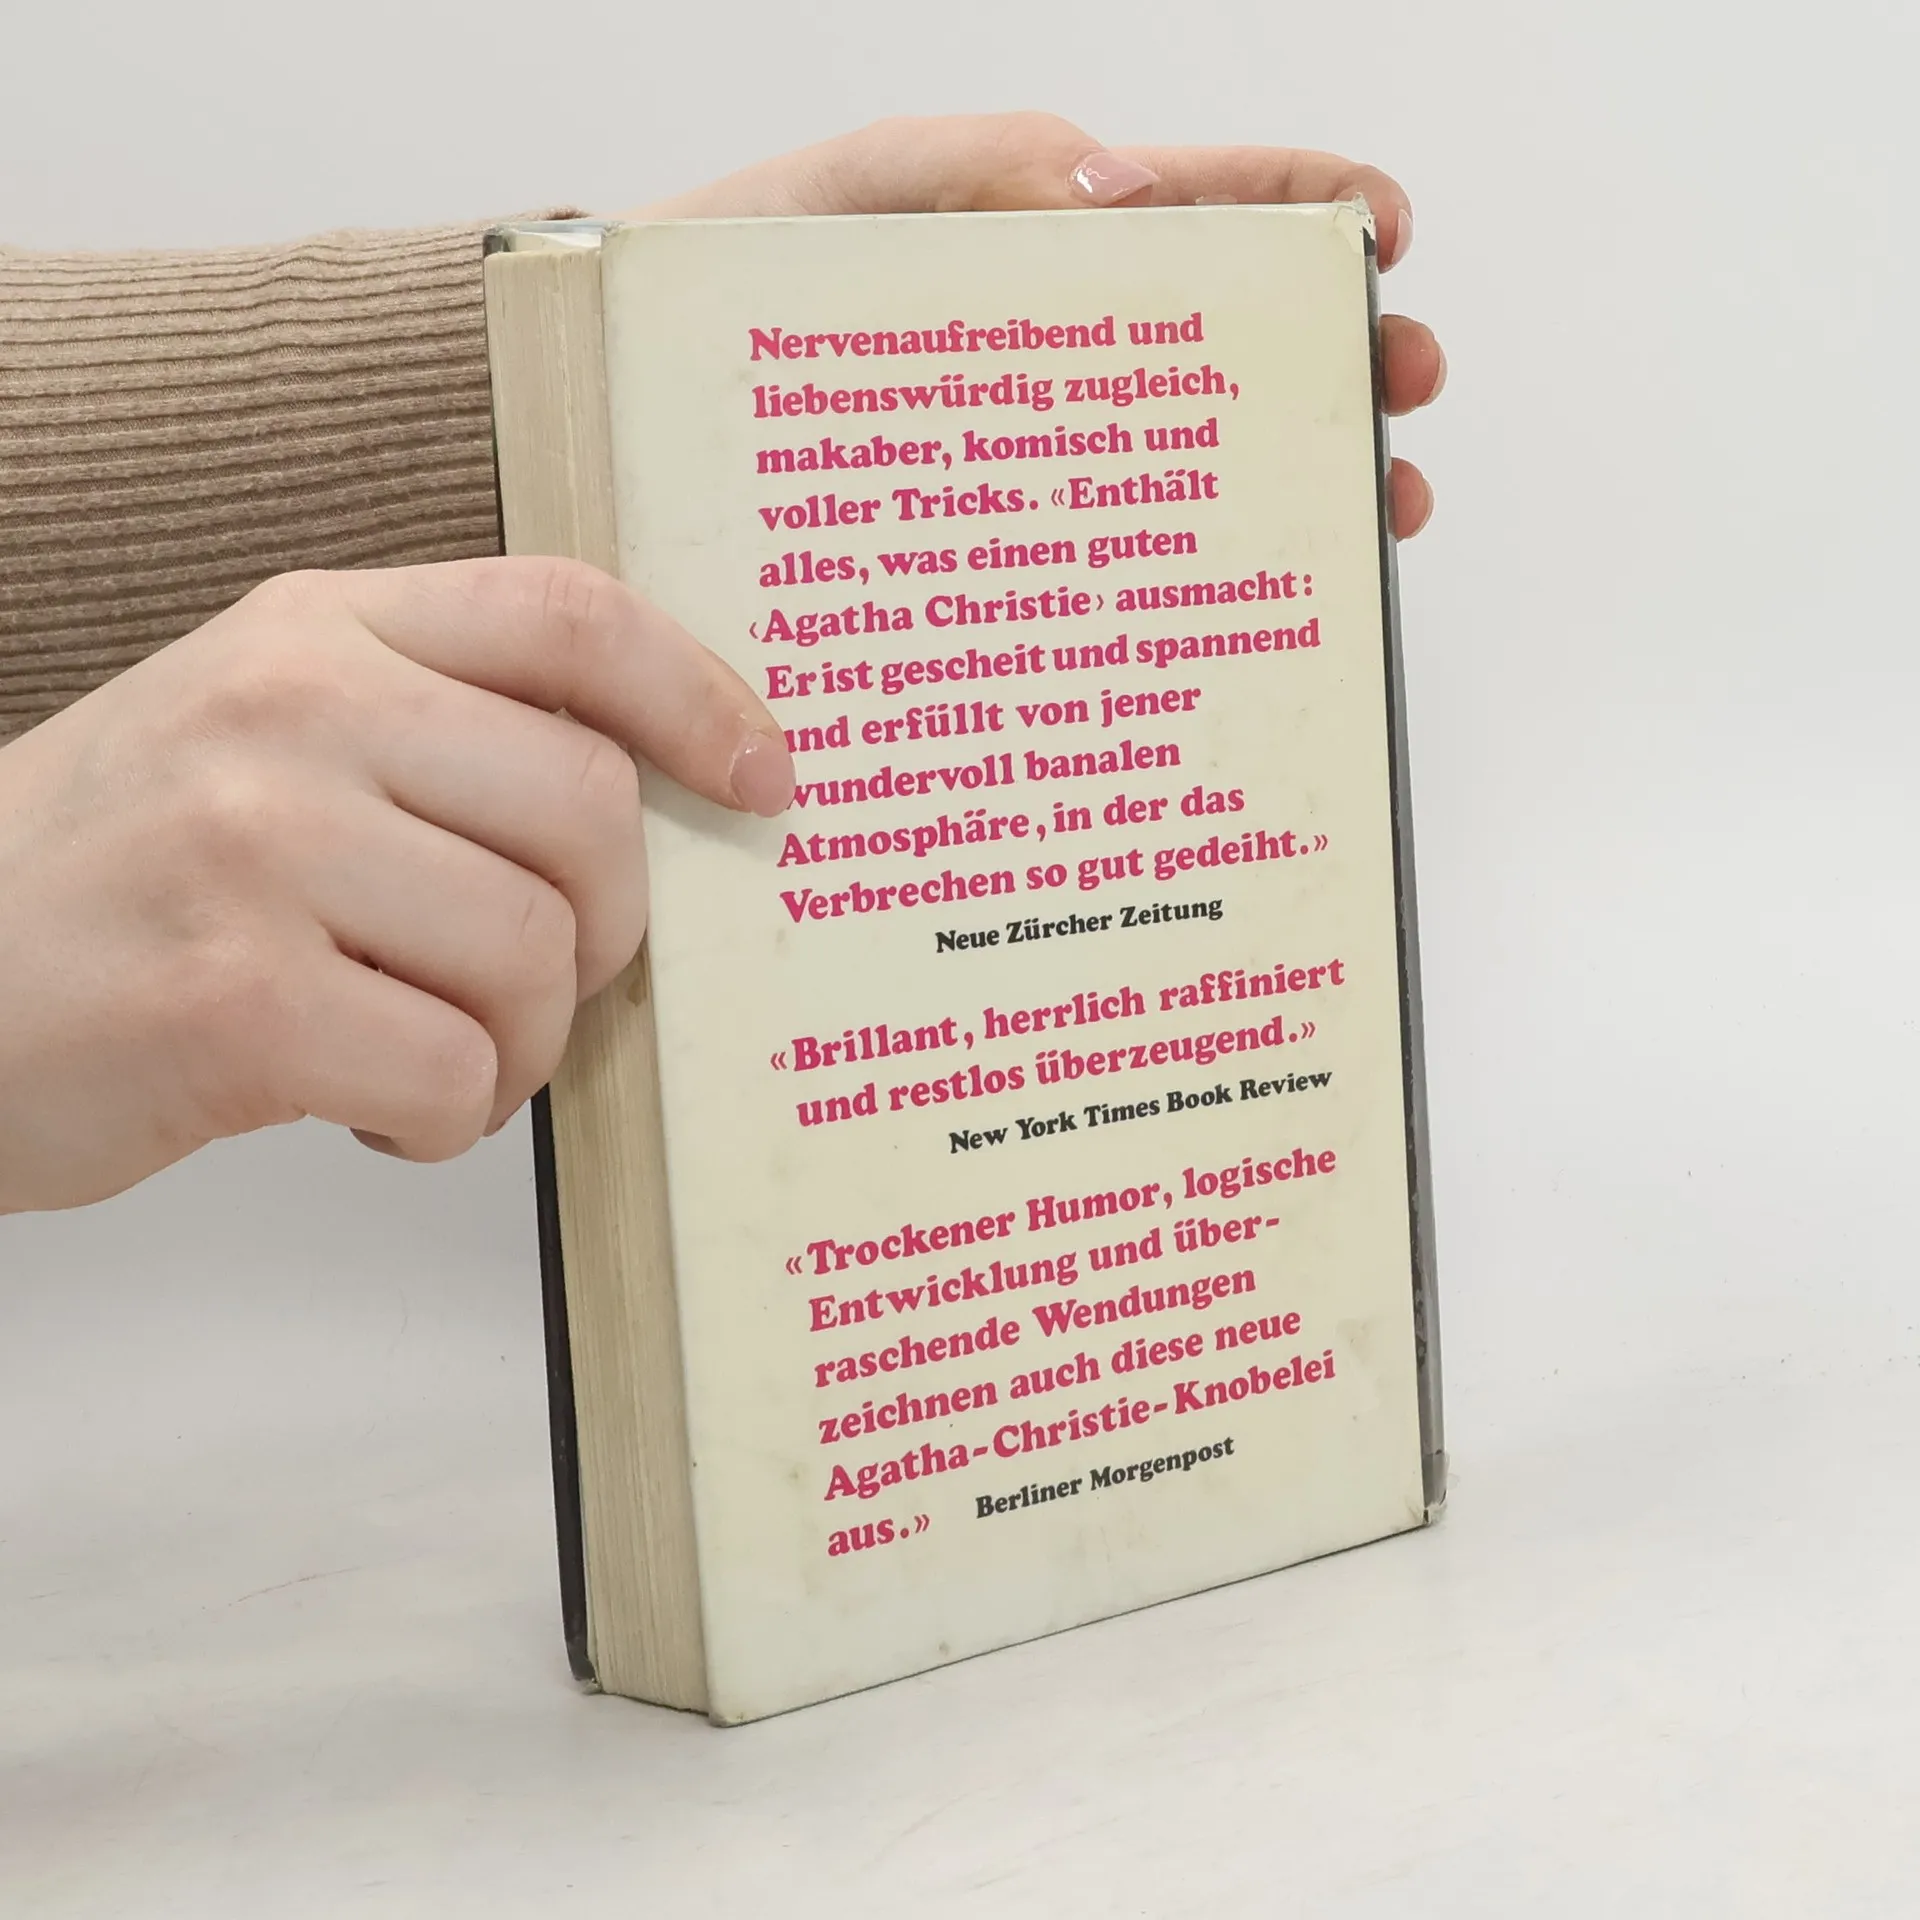 Nervenaufreibend und
liebenswürdig zugleich,
makaber, komisch und
voller Tricks. «Enthält
alles, was einen guten
‹Agatha Christie› ausmacht:
Er ist gescheit und spannend
und erfüllt von jener
wundervoll banalen
Atmosphäre, in der das
Verbrechen so gut gedeiht.»
Neue Zürcher Zeitung
«Brillant, herrlich raffiniert
und restlos überzeugend.»
New York Times Book Review
«Trockener Humor, logische
Entwicklung und über-
raschende Wendungen
zeichnen auch diese neue
Agatha-Christie-Knobelei
aus.» Berliner Morgenpost